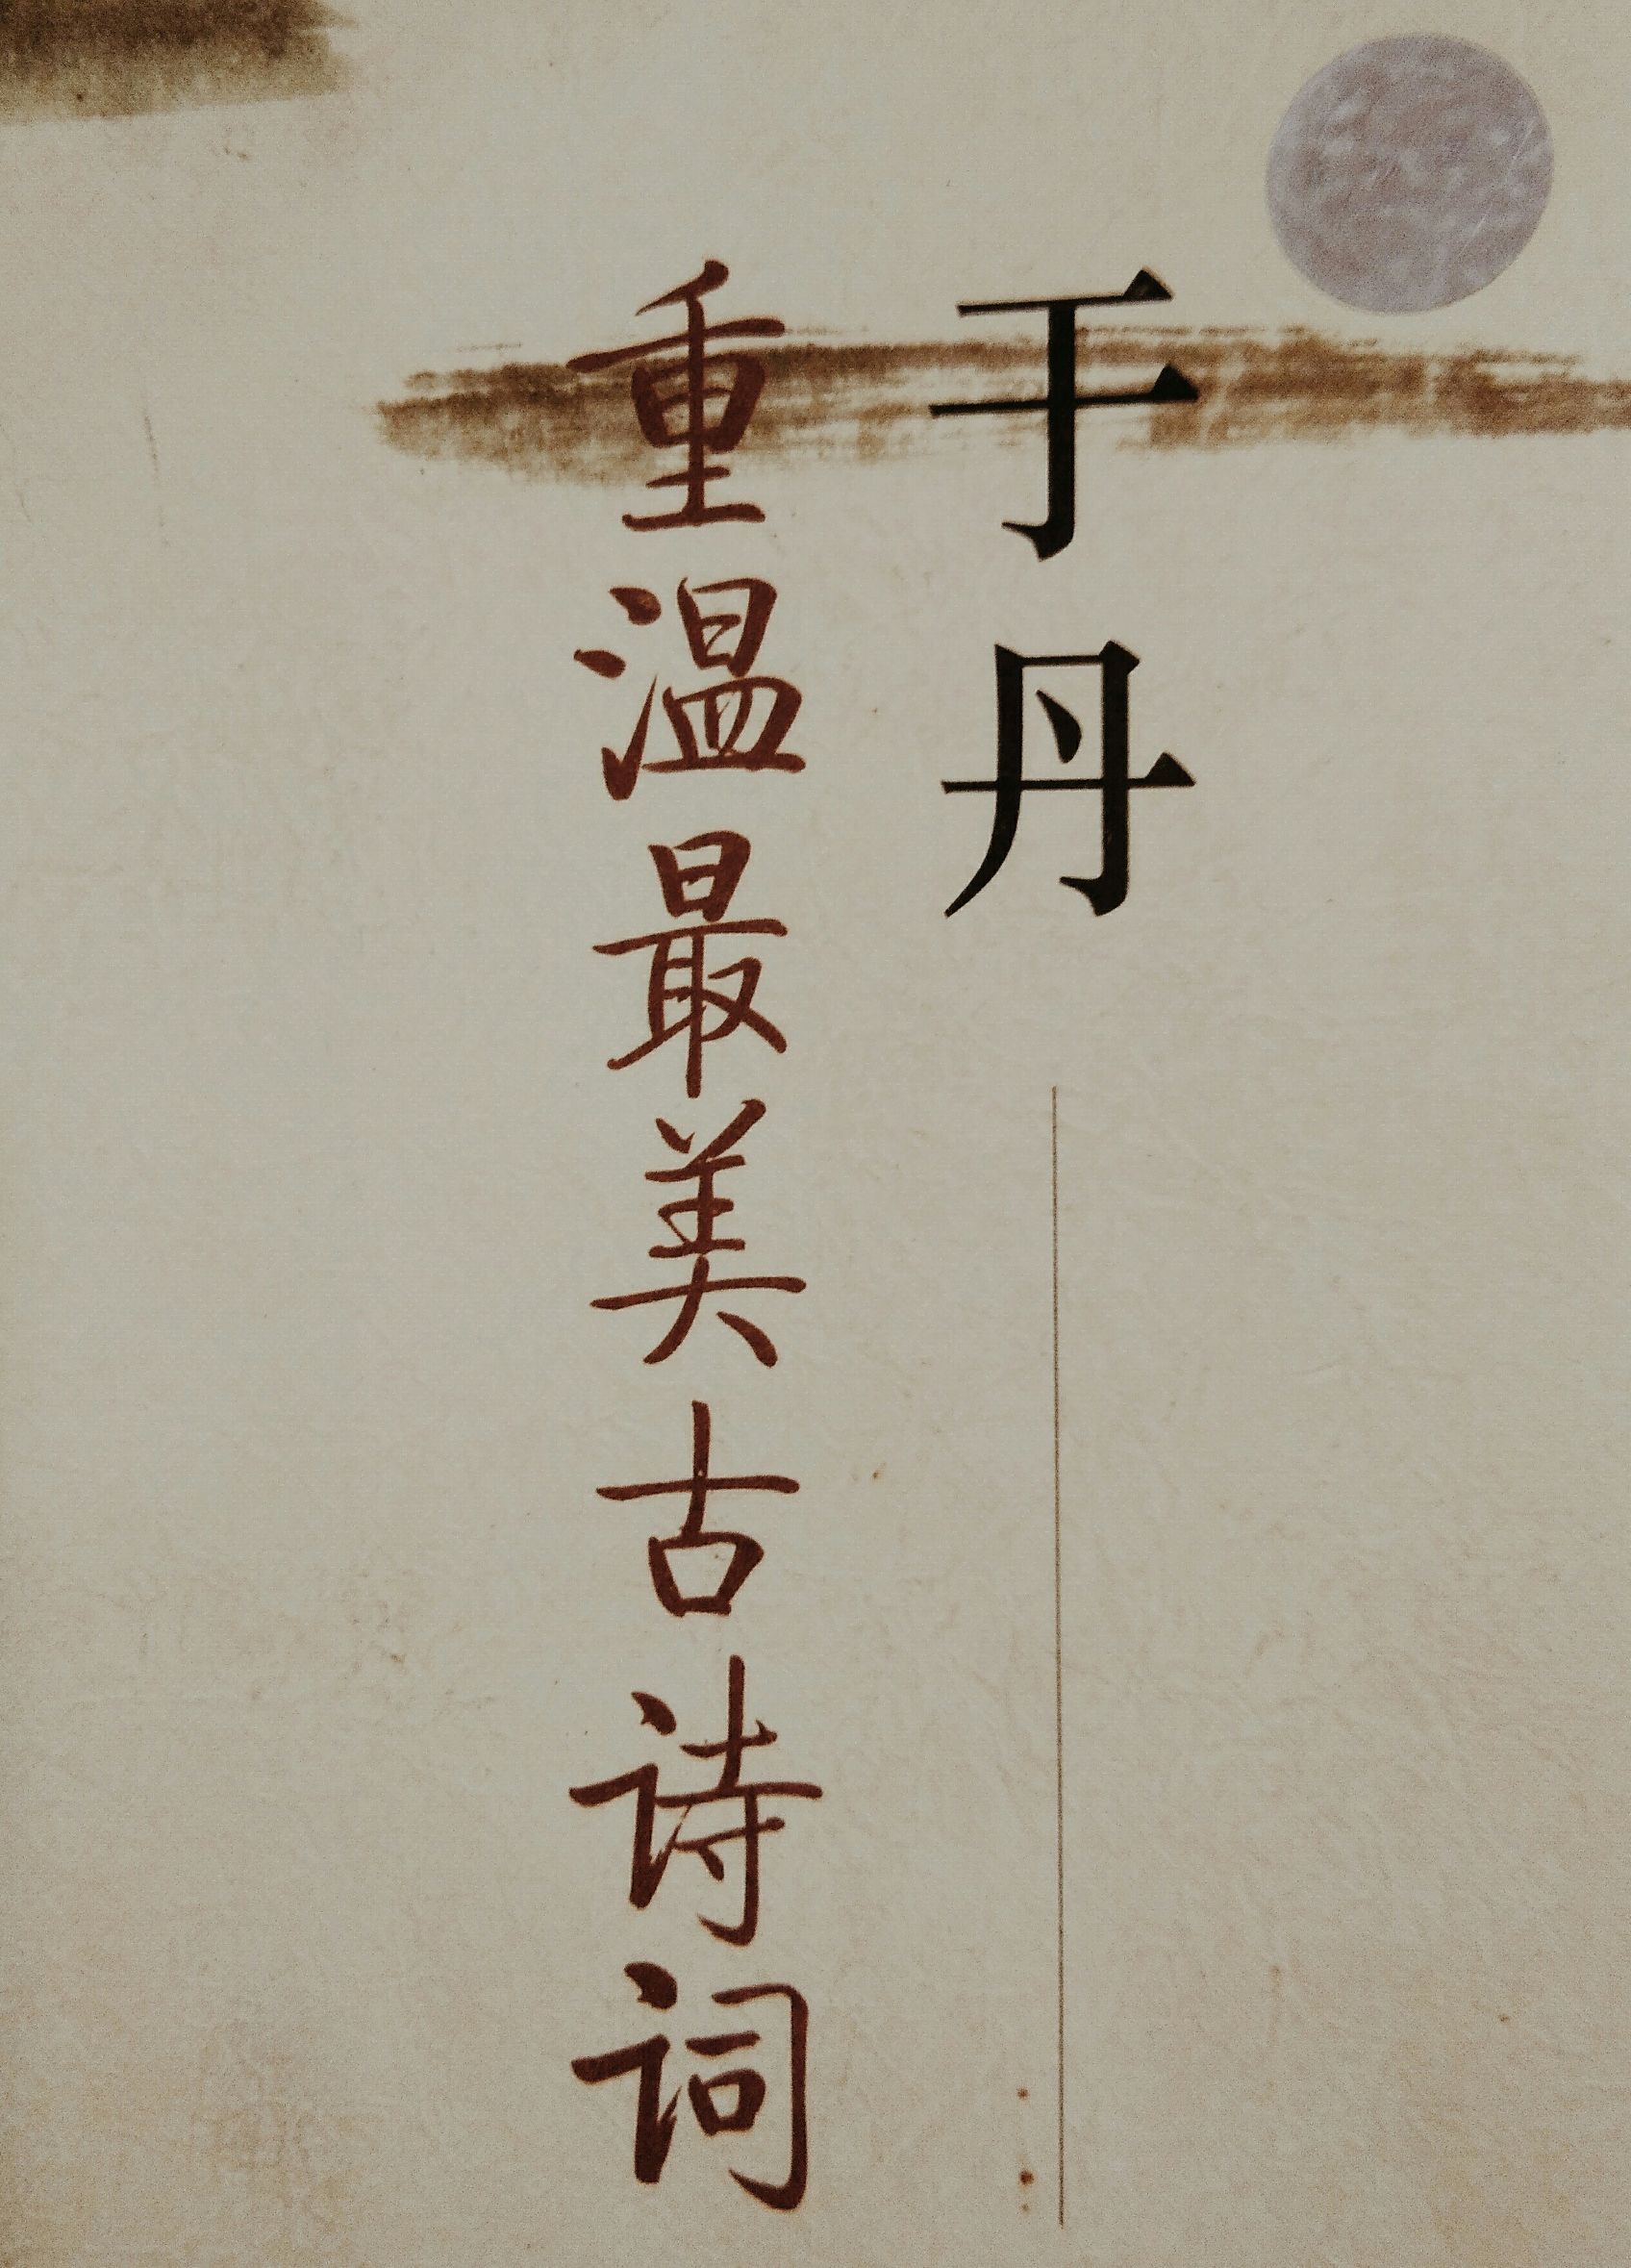 于丹
重温最美古诗词